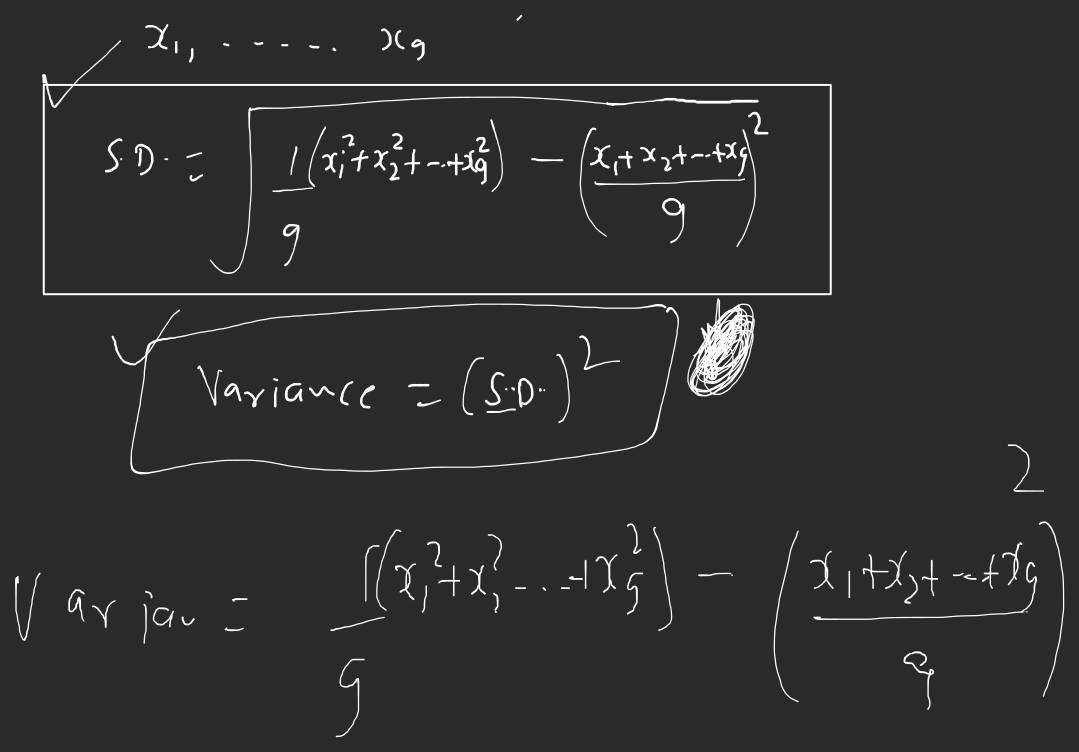 x₁, ------ x₉
S.D. = √(1/9 (x₁²+x₂²+--+x₉²) − ((x₁+x₂+--+x₉)/9)²)
Variance = (S.D.)²
Varian = 1/9 (x₁²+x₂²---+x₉²) − ((x₁+x₂+--+x₉)/9)²